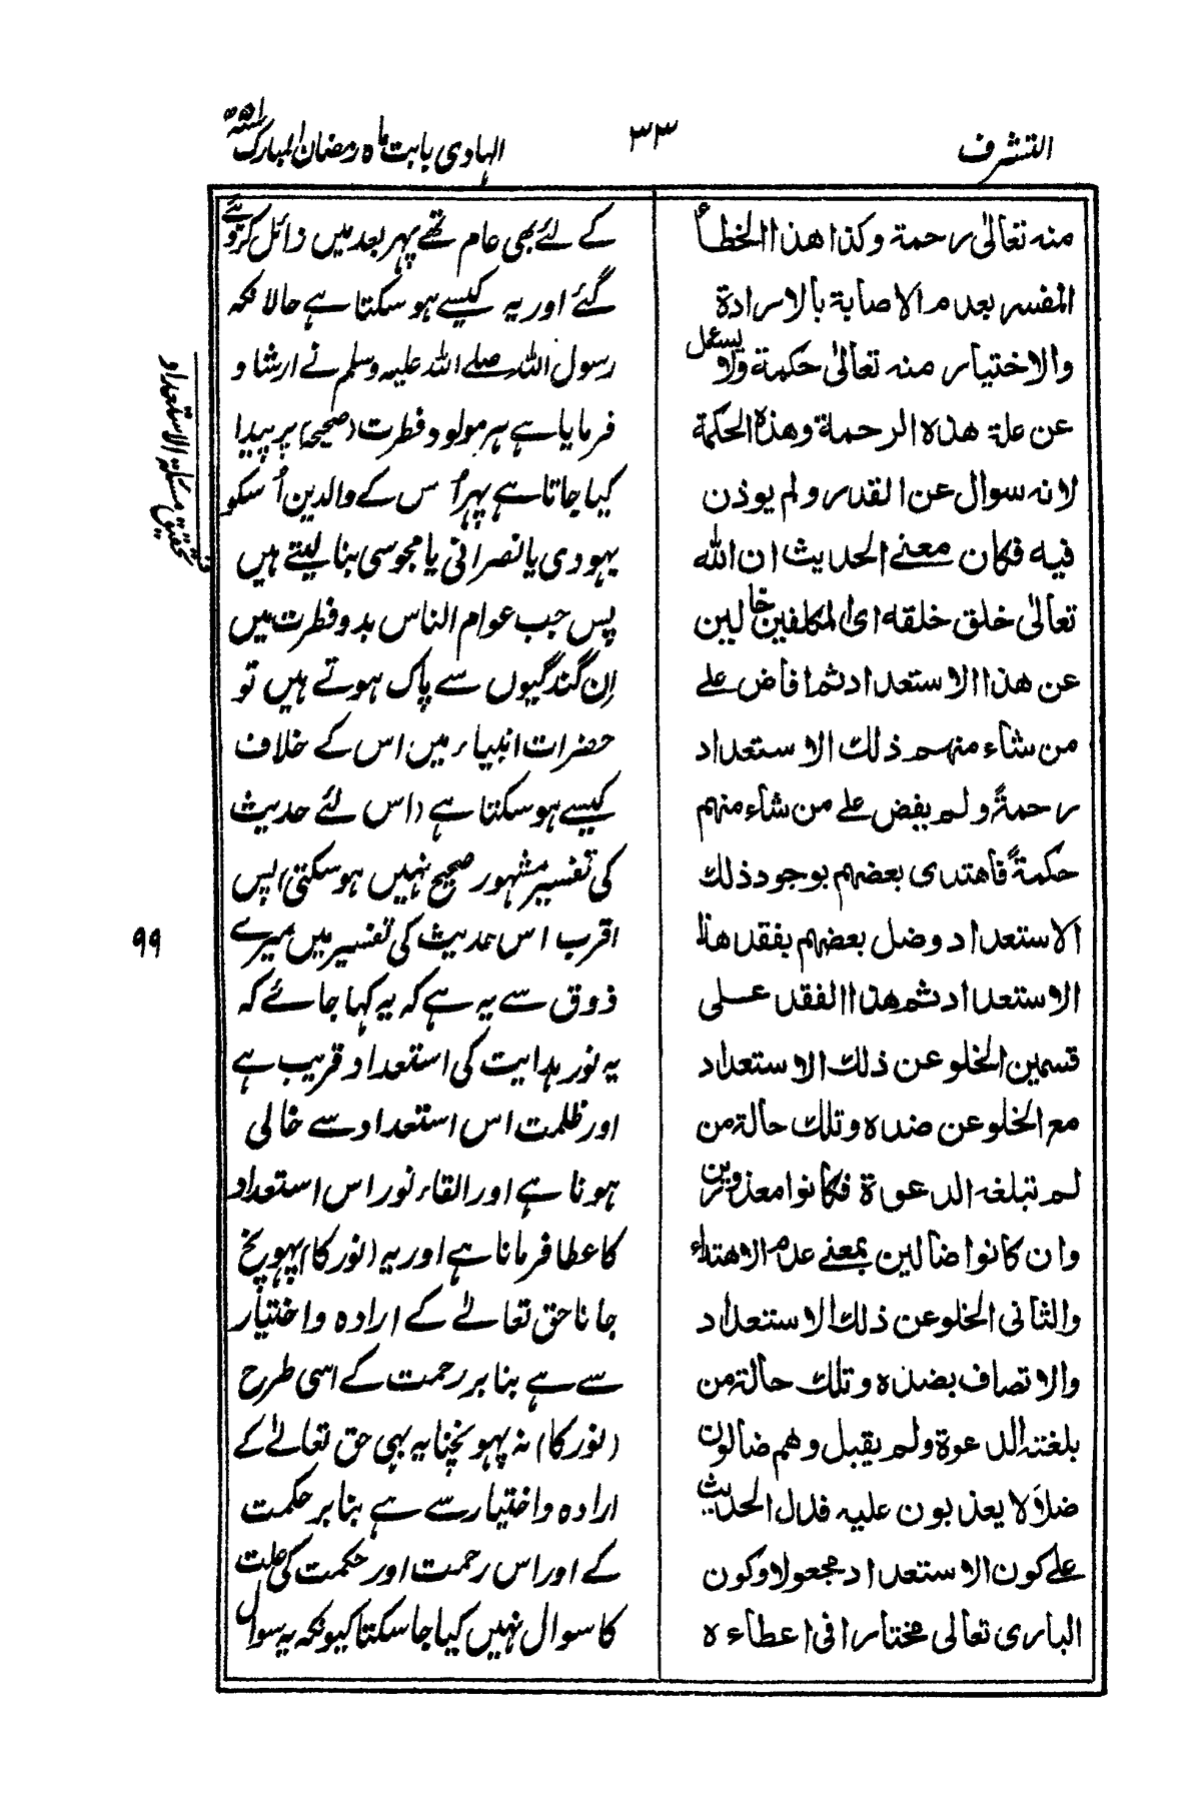 التشرف
۳۳
الہادی بابت ماہ رمضان المبارک
منہ تعالیٰ رحمۃ وکذا ھذا الخطأ
المفسر بعدم الاصابۃ بالارادۃ
والاختیار منہ تعالیٰ حکمۃ ولا یسئل
عن علۃ ھذہ الرحمۃ وھذہ الحکمۃ
لانہ سوال عن القدر ولم یوذن
فیہ فکان معنے الحدیث ان اللہ
تعالیٰ خلق خلقہ ای المکلفین خالین
عن ھذا الاستعداد ثم افاض علے
من شاء منہم ذلک الاستعداد
رحمۃً ولم یفض علے من شاء منہم
حکمۃً فاھتدی بعضہم بوجود ذلک
الاستعداد وضل بعضہم بفقد ھذا
الاستعداد ثم ھذا الفقد علی
قسمین الخلو عن ذلک الاستعداد
مع الخلو عن ضدہ وتلک حالۃ من
لم تبلغہ الدعوۃ فکانوا معذورین
وان کانوا ضالین بمعنے عدم الاھتداء
والثانی الخلو عن ذلک الاستعداد
والاتصاف بضدہ وتلک حالۃ من
بلغتہ الدعوۃ ولم یقبل وھم ضالون
ضلالا یعذبون علیہ فدل الحدیث
علے کون الاستعداد مجعولا وکون
الباری تعالی مختارا فی اعطاءہ
کے لئے بھی عام تھے پہر بعد میں زائل کردئیے
گئے اور یہ کیسے ہوسکتا ہے حالانکہ
رسول اللہ صلے اللہ علیہ وسلم نے ارشاد
فرمایا ہے ہر مولود فطرت (صحیحہ) پر پیدا
کیا جاتا ہے پہر اُس کے والدین اُسکو
یہودی یا نصرانی یا مجوسی بنا لیتے ہیں
پس جب عوام الناس بدو فطرت میں
اِن گندگیوں سے پاک ہوتے ہیں تو
حضرات انبیاء میں اس کے خلاف
کیسے ہوسکتا ہے (اس لئے حدیث
کی تفسیر مشہور صحیح نہیں ہوسکتی) پس
اقرب اس حدیث کی تفسیر میں میرے
ذوق سے یہ ہے کہ یہ کہا جائے کہ
یہ نور ہدایت کی استعداد قریب ہے
اور ظلمت اس استعداد سے خالی
ہونا ہے اور القاء نور اس استعداد
کا عطا فرمانا ہے اور یہ (نور کا) پہونچ
جانا حق تعالےٰ کے ارادہ و اختیار
سے ہے بنا بر رحمت کے اسی طرح
(نور کا) نہ پہونچنا یہ بہی حق تعالےٰ کے
ارادہ و اختیار سے ہے بنا بر حکمت
کے اور اس رحمت اور حکمت کی علت
کا سوال نہیں کیا جاسکتا کیونکہ یہ سوال
تحقیق مسئلۃ الاستعداد
۹۹